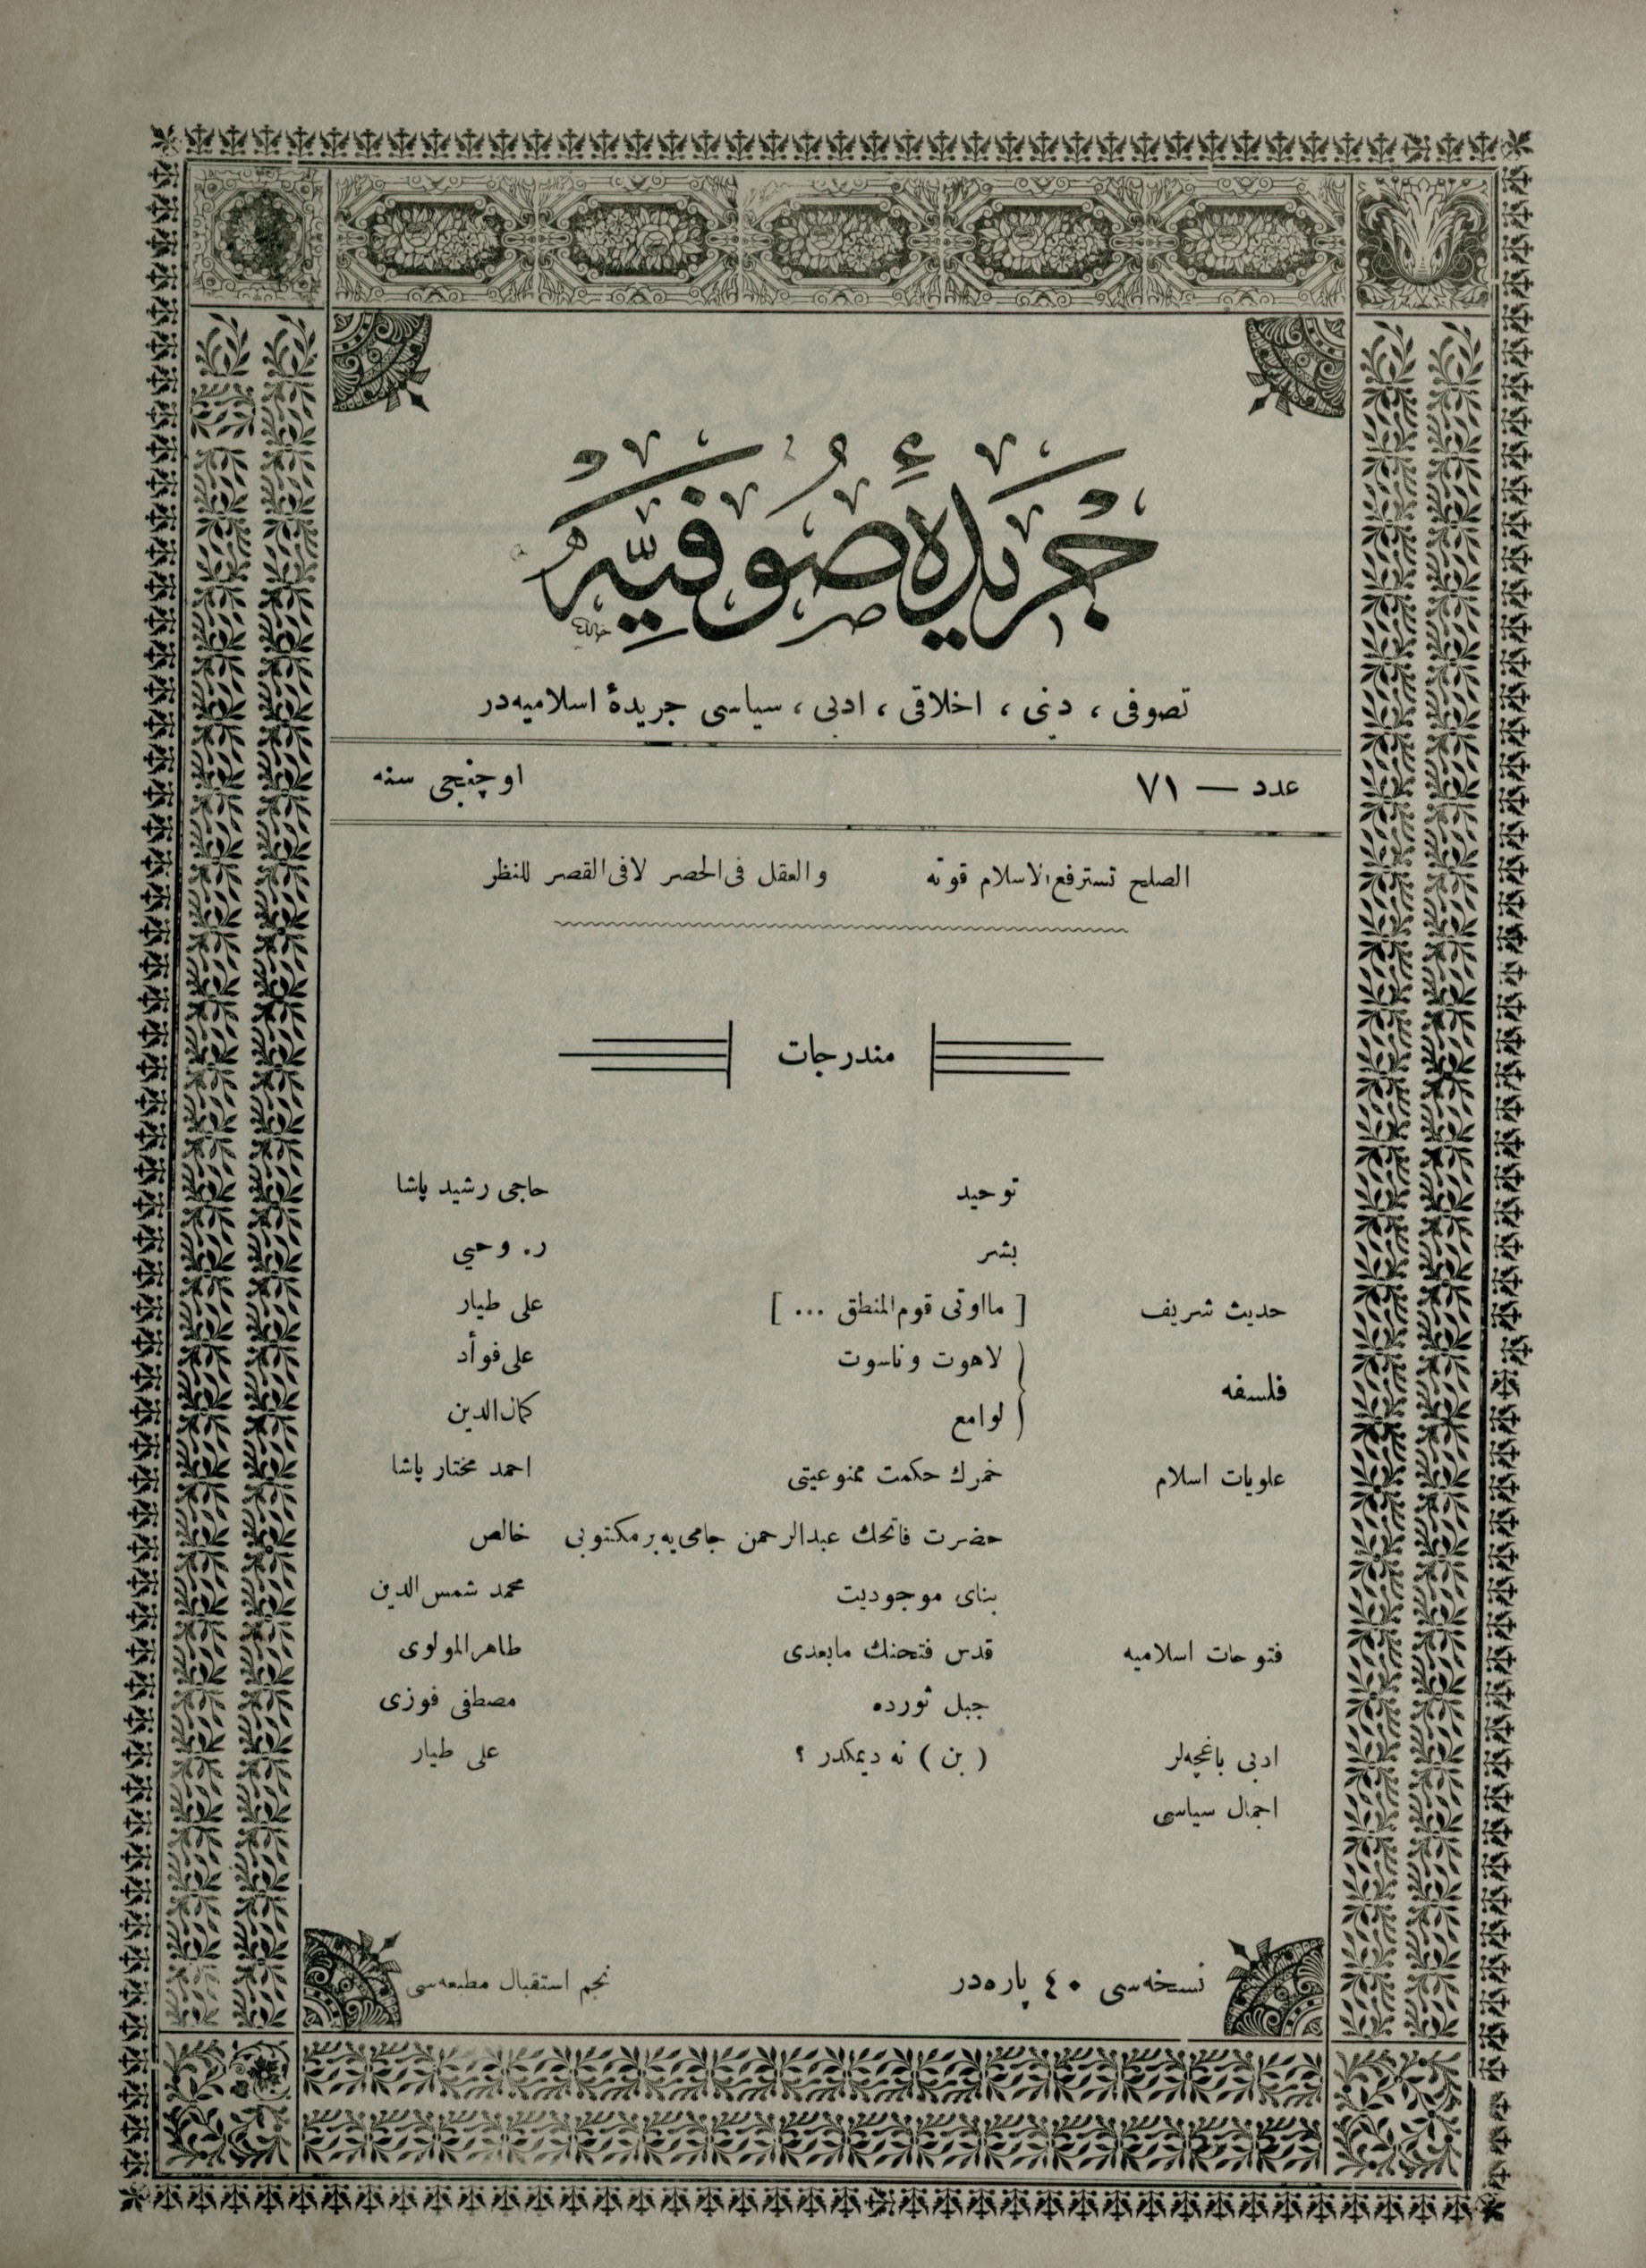 جريدۀ صوفيه
تصوفى ، دينى ، اخلاقى ، ادبى ، سياسى جريدۀ اسلاميه‌در
عدد — ٧١ اوچنجى سنه
الصلح تسترفع الاسلام قوته والعقل فى الحصر لا فى القصر للنظر
مندرجات
توحيد حاجى رشيد پاشا
بشر ر. وحيى
حديث شريف [ ما اوتى قوم المنطق ... ] على طيار
فلسفه
لاهوت وناسوت على فوأد
لوامع كمال الدين
علويات اسلام خمرك حكمت ممنوعيتى احمد مختار پاشا
حضرت فاتحك عبدالرحمن جامى‌يه بر مكتوبى خالص
بناى موجوديت محمد شمس الدين
فتوحات اسلاميه قدس فتحنك مابعدى طاهر المولوى
جبل ثورده مصطفى فوزى
ادبى باغچه‌لر ( بن ) نه ديمكدر ؟ على طيار
اجمال سياسى
نسخه‌سى ٤٠ پاره‌در نجم استقبال مطبعه‌سى